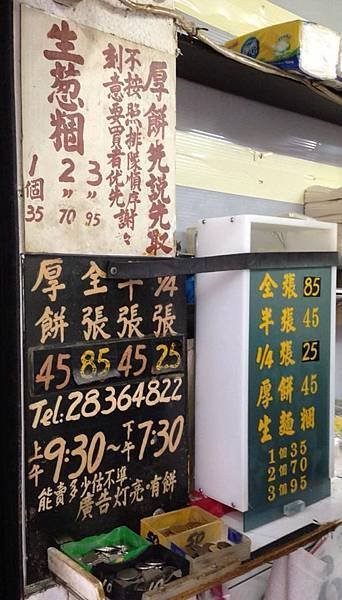 厚餅先說先取
不按照排隊順序謝:
刻意要買者优先
生葱糰
3〃95
2〃70
1個35
厚餅 全張 半張 1/4張
45 85 45 25
Tel:28364822
上午9:30~下午7:30
能賣多少估不準
廣告灯亮·有餅
全張85
半張45
1/4張25
厚餅45
生麵糰
1個35
2個70
3個95